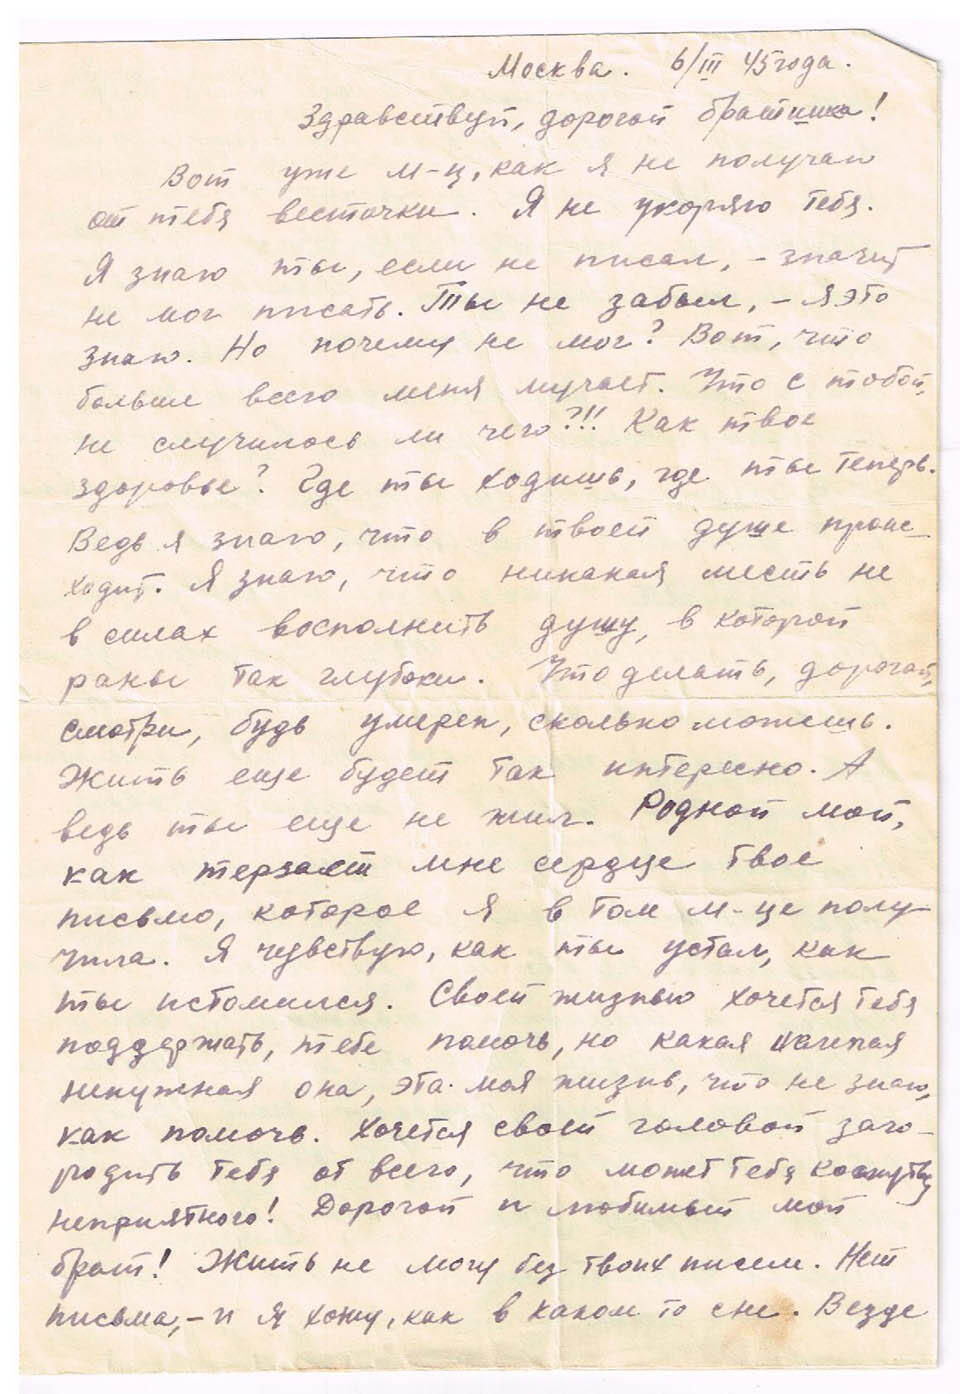 Москва. 6/III 45 года.
Здравствуй, дорогой братишка!
Вот уже м-ц, как я не получаю
от тебя весточки. Я не укоряю тебя.
Я знаю ты, если не писал, - значит
не мог писать. Ты не забыл, - я это
знаю. Но почему не мог? Вот, что
больше всего меня мучает. Что с тобой,
не случилось ли чего?!! Как твое
здоровье? Где ты ходишь, где ты теперь.
Ведь я знаю, что в твоей душе проис-
ходит. Я знаю, что никакая месть не
в силах восполнить душу, в которой
раны так глубоки. Что делать, дорогой,
смотри, будь умерен, сколько можешь.
Жить еще будет так интересно. А
ведь ты еще не жил. Родной мой,
как терзает мне сердце твое
письмо, которое я в том м-це полу-
чила. Я чувствую, как ты устал, как
ты истомился. Своей жизнью хочется тебя
поддержать, тебе помочь, но какая
ненужная она, эта моя жизнь, что не знаю,
как помочь. Хочется своей головой заго-
родить тебя от всего, что может тебя коснуться
неприятного! Дорогой и любимый мой
брат! Жить не могу без твоих писем. Нет
письма, - и я хожу, как в каком то сне. Везде